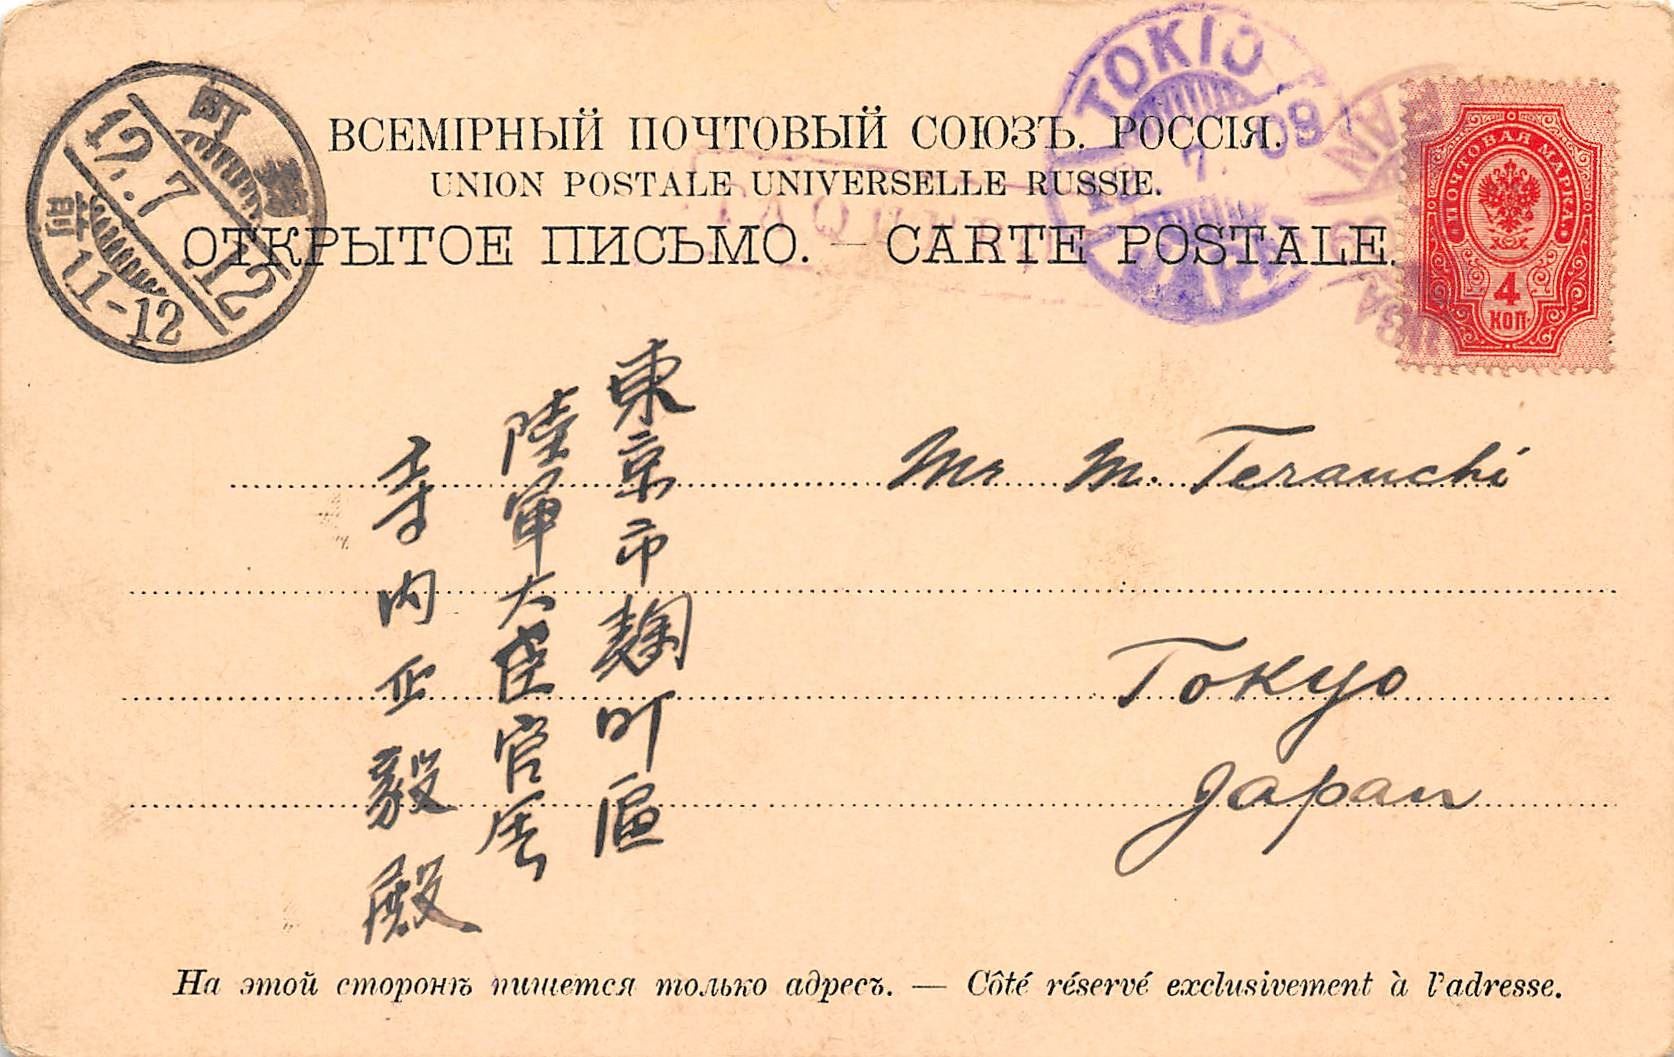 ВСЕМІРНЫЙ ПОЧТОВЫЙ СОЮЗЪ. РОССІЯ.
UNION POSTALE UNIVERSELLE RUSSIE.
ОТКРЫТОЕ ПИСЬМО. — CARTE POSTALE.
TOKIO
12. 7. 09
PAQUEBOT
麹町
12. 7. 12
前11-12
ПОЧТОВАЯ МАРКА
4
КОП.
Mr M. Terauchi
Tokyo
Japan
東京市麹町區
陸軍大臣官舎
寺内正毅殿
На этой сторонѣ пишется только адресъ. — Côté réservé exclusivement à l'adresse.